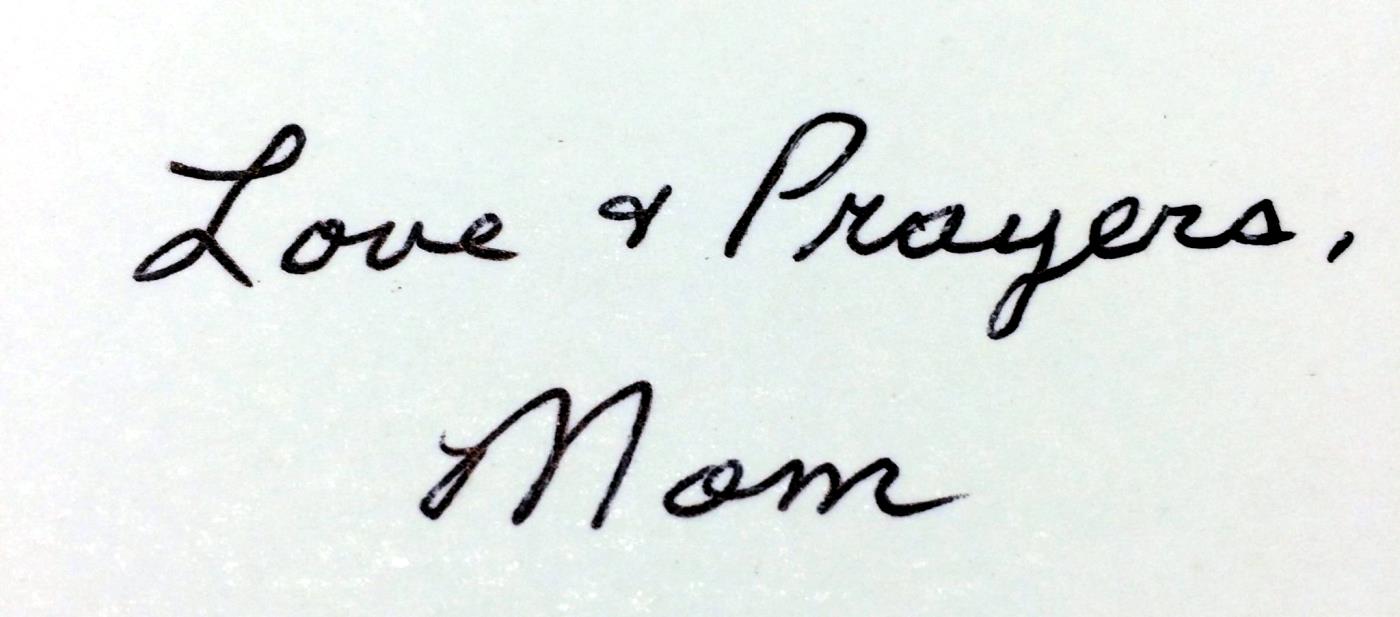 Love & Prayers,
Mom